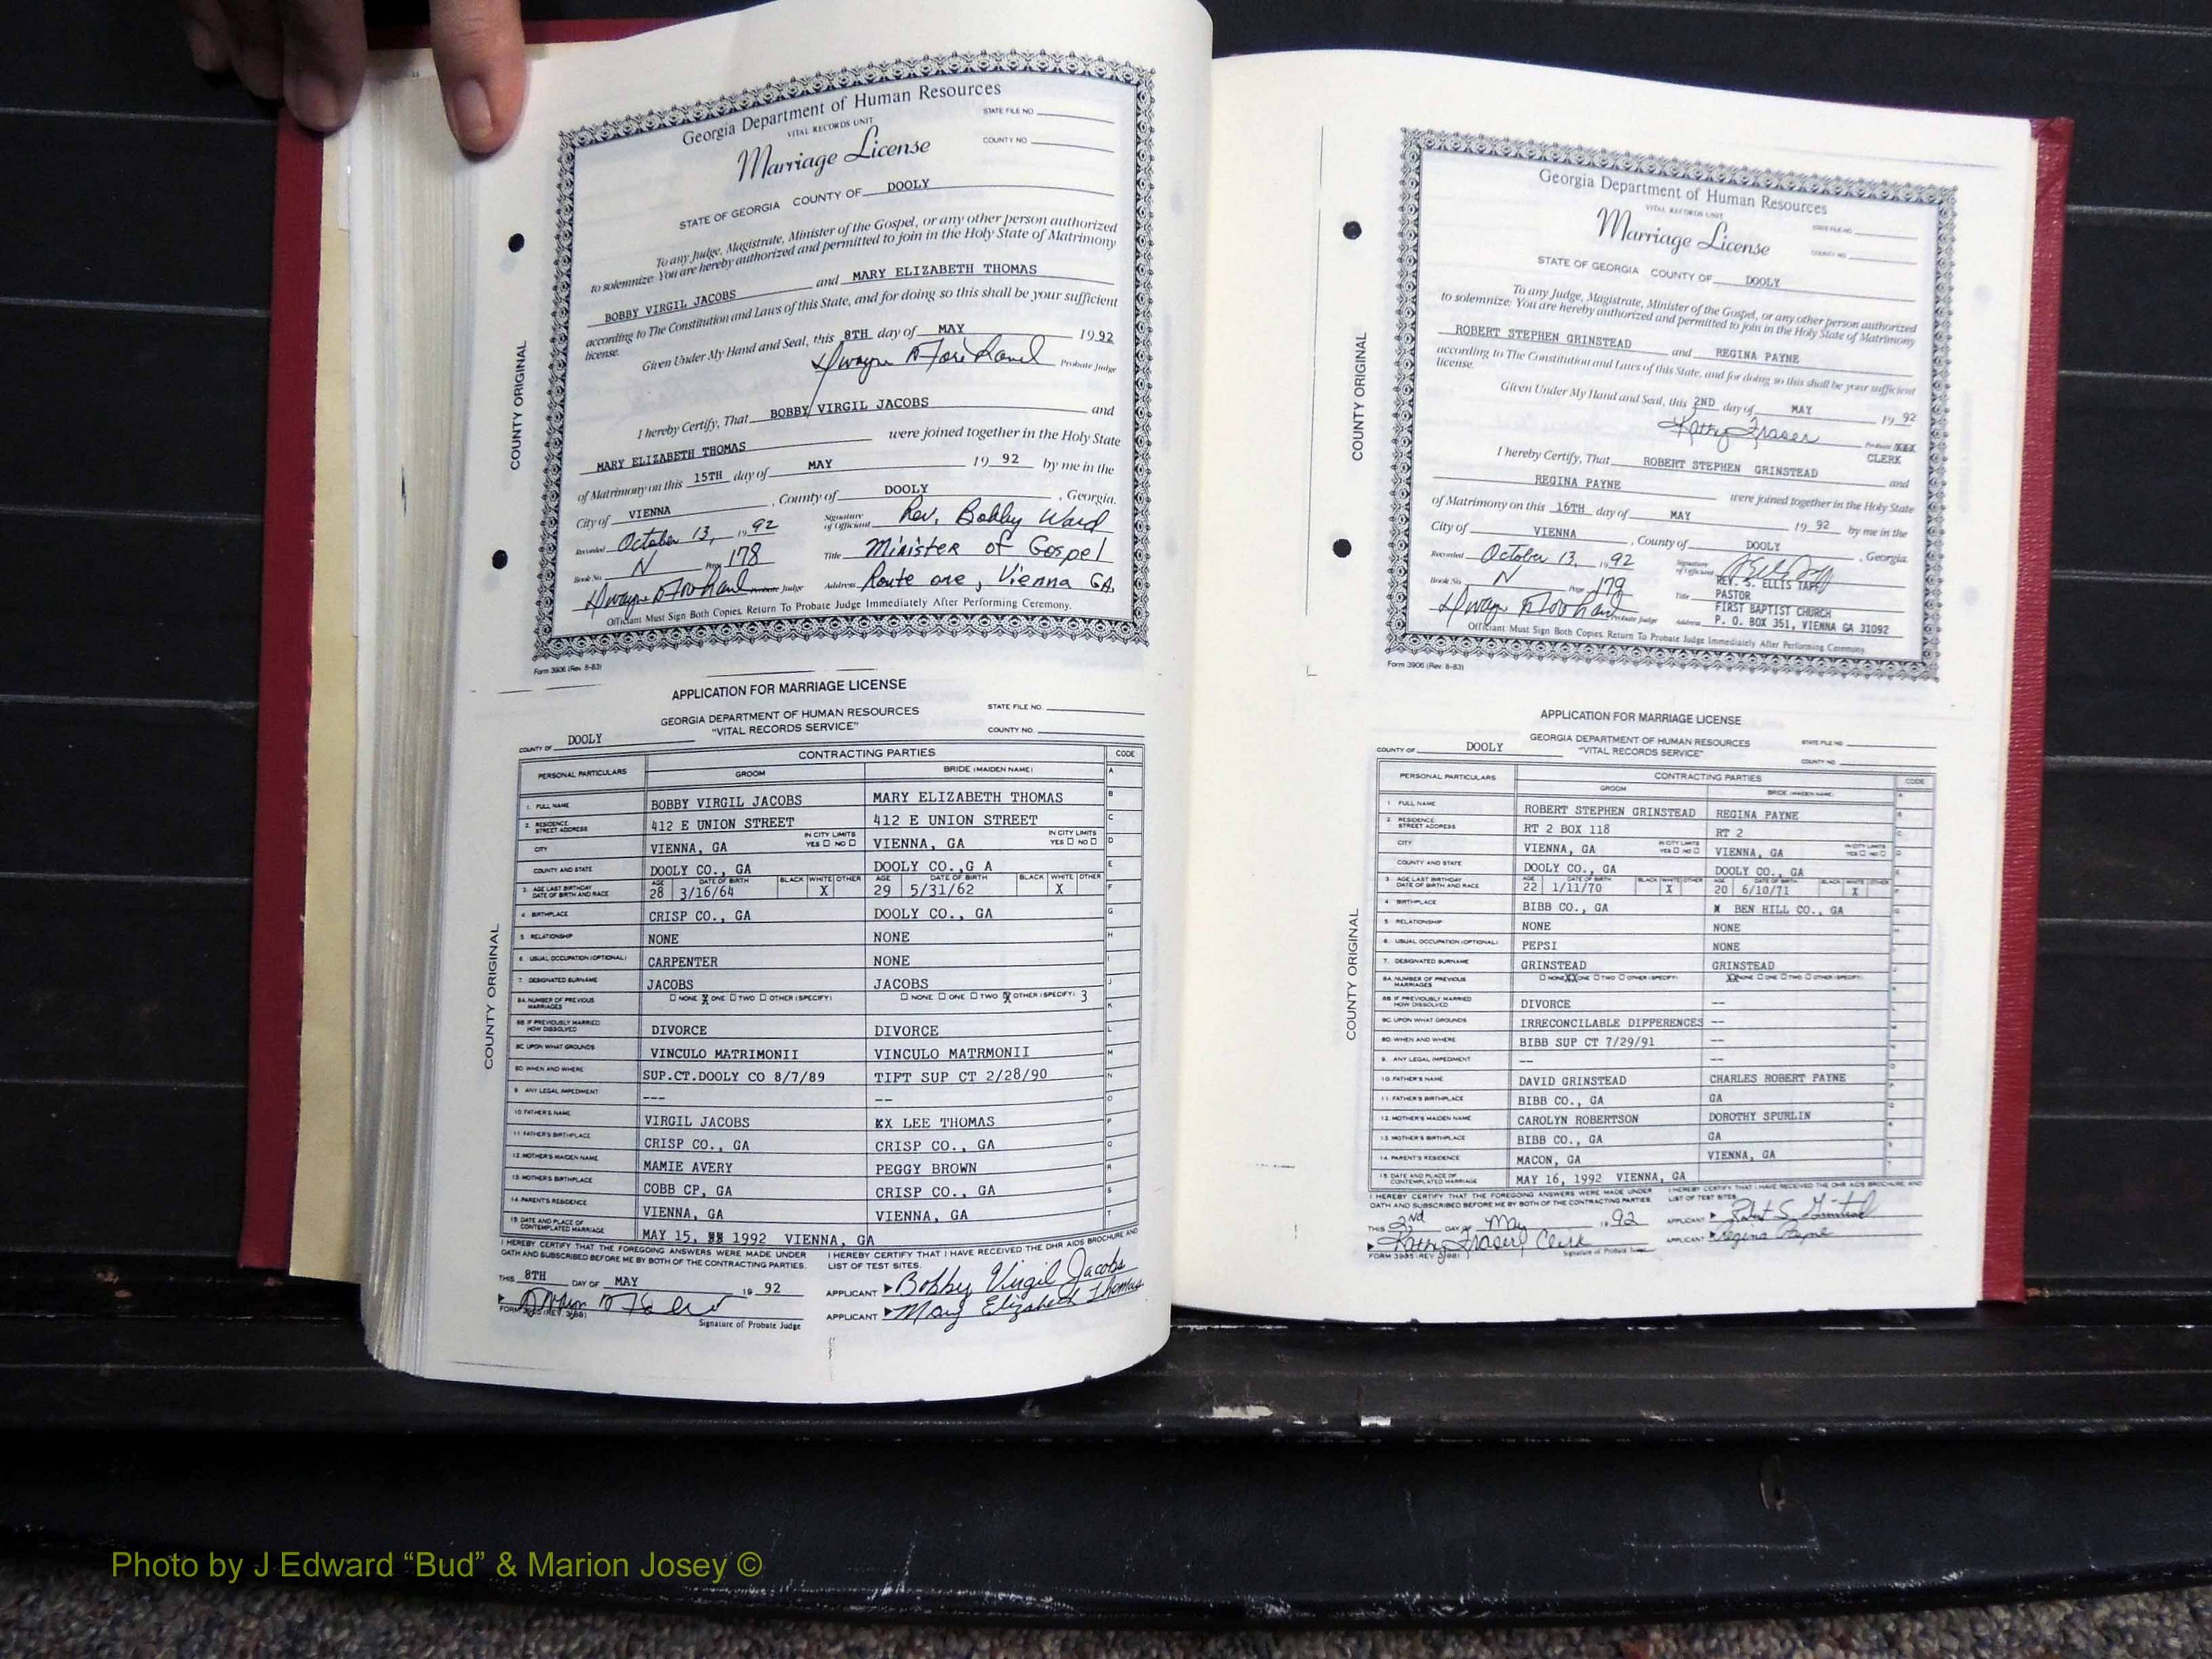 Georgia Department of Human Resources
VITAL RECORDS UNIT
STATE FILE NO.
Marriage License
COUNTY NO.
STATE OF GEORGIA COUNTY OF DOOLY
To any Judge, Magistrate, Minister of the Gospel, or any other person authorized
to solemnize: You are hereby authorized and permitted to join in the Holy State of Matrimony
BOBBY VIRGIL JACOBS and MARY ELIZABETH THOMAS
according to The Constitution and Laws of this State, and for doing so this shall be your sufficient
license.
Given Under My Hand and Seal, this 8TH day of MAY 1992
Probate Judge
I hereby Certify, That BOBBY VIRGIL JACOBS and
MARY ELIZABETH THOMAS were joined together in the Holy State
of Matrimony on this 15TH day of MAY 19 92 by me in the
City of VIENNA, County of DOOLY, Georgia.
Recorded October 13, 1992 Signature of Officiant Rev. Bobby Ward
Book No. N Page 178 Title Minister of Gospel
Probate Judge Address Route one, Vienna GA,
Officiant Must Sign Both Copies. Return To Probate Judge Immediately After Performing Ceremony.
Form 3906 (Rev. 8-83)
COUNTY ORIGINAL
APPLICATION FOR MARRIAGE LICENSE
GEORGIA DEPARTMENT OF HUMAN RESOURCES STATE FILE NO.
"VITAL RECORDS SERVICE" COUNTY NO.
COUNTY OF DOOLY
PERSONAL PARTICULARS CONTRACTING PARTIES CODE
GROOM BRIDE (MAIDEN NAME) A
1. FULL NAME BOBBY VIRGIL JACOBS MARY ELIZABETH THOMAS B
2. RESIDENCE STREET ADDRESS 412 E UNION STREET 412 E UNION STREET C
CITY VIENNA, GA IN CITY LIMITS YES NO VIENNA, GA IN CITY LIMITS YES NO D
COUNTY AND STATE DOOLY CO., GA DOOLY CO.,G A E
3. AGE LAST BIRTHDAY DATE OF BIRTH AND RACE AGE 28 DATE OF BIRTH 3/16/64 BLACK WHITE X OTHER AGE 29 DATE OF BIRTH 5/31/62 BLACK WHITE X OTHER F
4. BIRTHPLACE CRISP CO., GA DOOLY CO., GA G
5. RELATIONSHIP NONE NONE H
6. USUAL OCCUPATION (OPTIONAL) CARPENTER NONE I
7. DESIGNATED SURNAME JACOBS JACOBS J
8A. NUMBER OF PREVIOUS MARRIAGES NONE X ONE TWO OTHER (SPECIFY) NONE ONE TWO X OTHER (SPECIFY) 3 K
8B. IF PREVIOUSLY MARRIED HOW DISSOLVED DIVORCE DIVORCE L
8C. UPON WHAT GROUNDS VINCULO MATRIMONII VINCULO MATRMONII M
8D. WHEN AND WHERE SUP.CT.DOOLY CO 8/7/89 TIFT SUP CT 2/28/90 N
9. ANY LEGAL IMPEDIMENT --- -- O
10. FATHER'S NAME VIRGIL JACOBS LEE THOMAS P
11. FATHER'S BIRTHPLACE CRISP CO., GA CRISP CO., GA Q
12. MOTHER'S MAIDEN NAME MAMIE AVERY PEGGY BROWN R
13. MOTHER'S BIRTHPLACE COBB CP, GA CRISP CO., GA S
14. PARENT'S RESIDENCE VIENNA, GA VIENNA, GA T
15. DATE AND PLACE OF CONTEMPLATED MARRIAGE MAY 15, 1992 VIENNA, GA
I HEREBY CERTIFY THAT THE FOREGOING ANSWERS WERE MADE UNDER I HEREBY CERTIFY THAT I HAVE RECEIVED THE DHR AIDS BROCHURE AND
OATH AND SUBSCRIBED BEFORE ME BY BOTH OF THE CONTRACTING PARTIES. LIST OF TEST SITES.
THIS 8TH DAY OF MAY 19 92 APPLICANT Bobby Virgil Jacobs
Signature of Probate Judge APPLICANT Mary Elizabeth Thomas
COUNTY ORIGINAL
Georgia Department of Human Resources
VITAL RECORDS UNIT
STATE FILE NO.
Marriage License
COUNTY NO.
STATE OF GEORGIA COUNTY OF DOOLY
To any Judge, Magistrate, Minister of the Gospel, or any other person authorized
to solemnize: You are hereby authorized and permitted to join in the Holy State of Matrimony
ROBERT STEPHEN GRINSTEAD and REGINA PAYNE
according to The Constitution and Laws of this State, and for doing so this shall be your sufficient
license.
Given Under My Hand and Seal, this 2ND day of MAY 19 92
Kathy Fraser Probate
CLERK
I hereby Certify, That ROBERT STEPHEN GRINSTEAD and
REGINA PAYNE were joined together in the Holy State
of Matrimony on this 16TH day of MAY 19 92 by me in the
City of VIENNA, County of DOOLY, Georgia.
Recorded October 13, 1992 Signature of Officiant
REV. S. ELLIS TAPP
Book No. N Page 179 Title PASTOR
FIRST BAPTIST CHURCH
Probate Judge Address P. O. BOX 351, VIENNA GA 31092
Officiant Must Sign Both Copies. Return To Probate Judge Immediately After Performing Ceremony.
Form 3906 (Rev. 8-83)
COUNTY ORIGINAL
APPLICATION FOR MARRIAGE LICENSE
GEORGIA DEPARTMENT OF HUMAN RESOURCES STATE FILE NO.
"VITAL RECORDS SERVICE" COUNTY NO.
COUNTY OF DOOLY
PERSONAL PARTICULARS CONTRACTING PARTIES CODE
GROOM BRIDE (MAIDEN NAME)
1. FULL NAME ROBERT STEPHEN GRINSTEAD REGINA PAYNE
2. RESIDENCE STREET ADDRESS RT 2 BOX 118 RT 2
CITY VIENNA, GA IN CITY LIMITS YES NO VIENNA, GA IN CITY LIMITS YES NO
COUNTY AND STATE DOOLY CO., GA DOOLY CO., GA
3. AGE LAST BIRTHDAY DATE OF BIRTH AND RACE AGE 22 DATE OF BIRTH 1/11/70 BLACK WHITE X OTHER AGE 20 DATE OF BIRTH 6/10/71 BLACK WHITE X OTHER
4. BIRTHPLACE BIBB CO., GA BEN HILL CO., GA
5. RELATIONSHIP NONE NONE
6. USUAL OCCUPATION (OPTIONAL) PEPSI NONE
7. DESIGNATED SURNAME GRINSTEAD GRINSTEAD
8A. NUMBER OF PREVIOUS MARRIAGES NONE XX ONE TWO OTHER (SPECIFY) XX NONE ONE TWO OTHER (SPECIFY)
8B. IF PREVIOUSLY MARRIED HOW DISSOLVED DIVORCE --
8C. UPON WHAT GROUNDS IRRECONCILABLE DIFFERENCES --
8D. WHEN AND WHERE BIBB SUP CT 7/29/91 --
9. ANY LEGAL IMPEDIMENT -- --
10. FATHER'S NAME DAVID GRINSTEAD CHARLES ROBERT PAYNE
11. FATHER'S BIRTHPLACE BIBB CO., GA GA
12. MOTHER'S MAIDEN NAME CAROLYN ROBERTSON DOROTHY SPURLIN
13. MOTHER'S BIRTHPLACE BIBB CO., GA GA
14. PARENT'S RESIDENCE MACON, GA VIENNA, GA
15. DATE AND PLACE OF CONTEMPLATED MARRIAGE MAY 16, 1992 VIENNA, GA
I HEREBY CERTIFY THAT THE FOREGOING ANSWERS WERE MADE UNDER I HEREBY CERTIFY THAT I HAVE RECEIVED THE DHR AIDS BROCHURE AND
OATH AND SUBSCRIBED BEFORE ME BY BOTH OF THE CONTRACTING PARTIES. LIST OF TEST SITES.
THIS 2nd DAY OF May 1992 APPLICANT Robert S. Grinstead
Kathy Fraser, Clerk Signature of Probate Judge APPLICANT Regina Payne
COUNTY ORIGINAL
Photo by J Edward “Bud” & Marion Josey ©